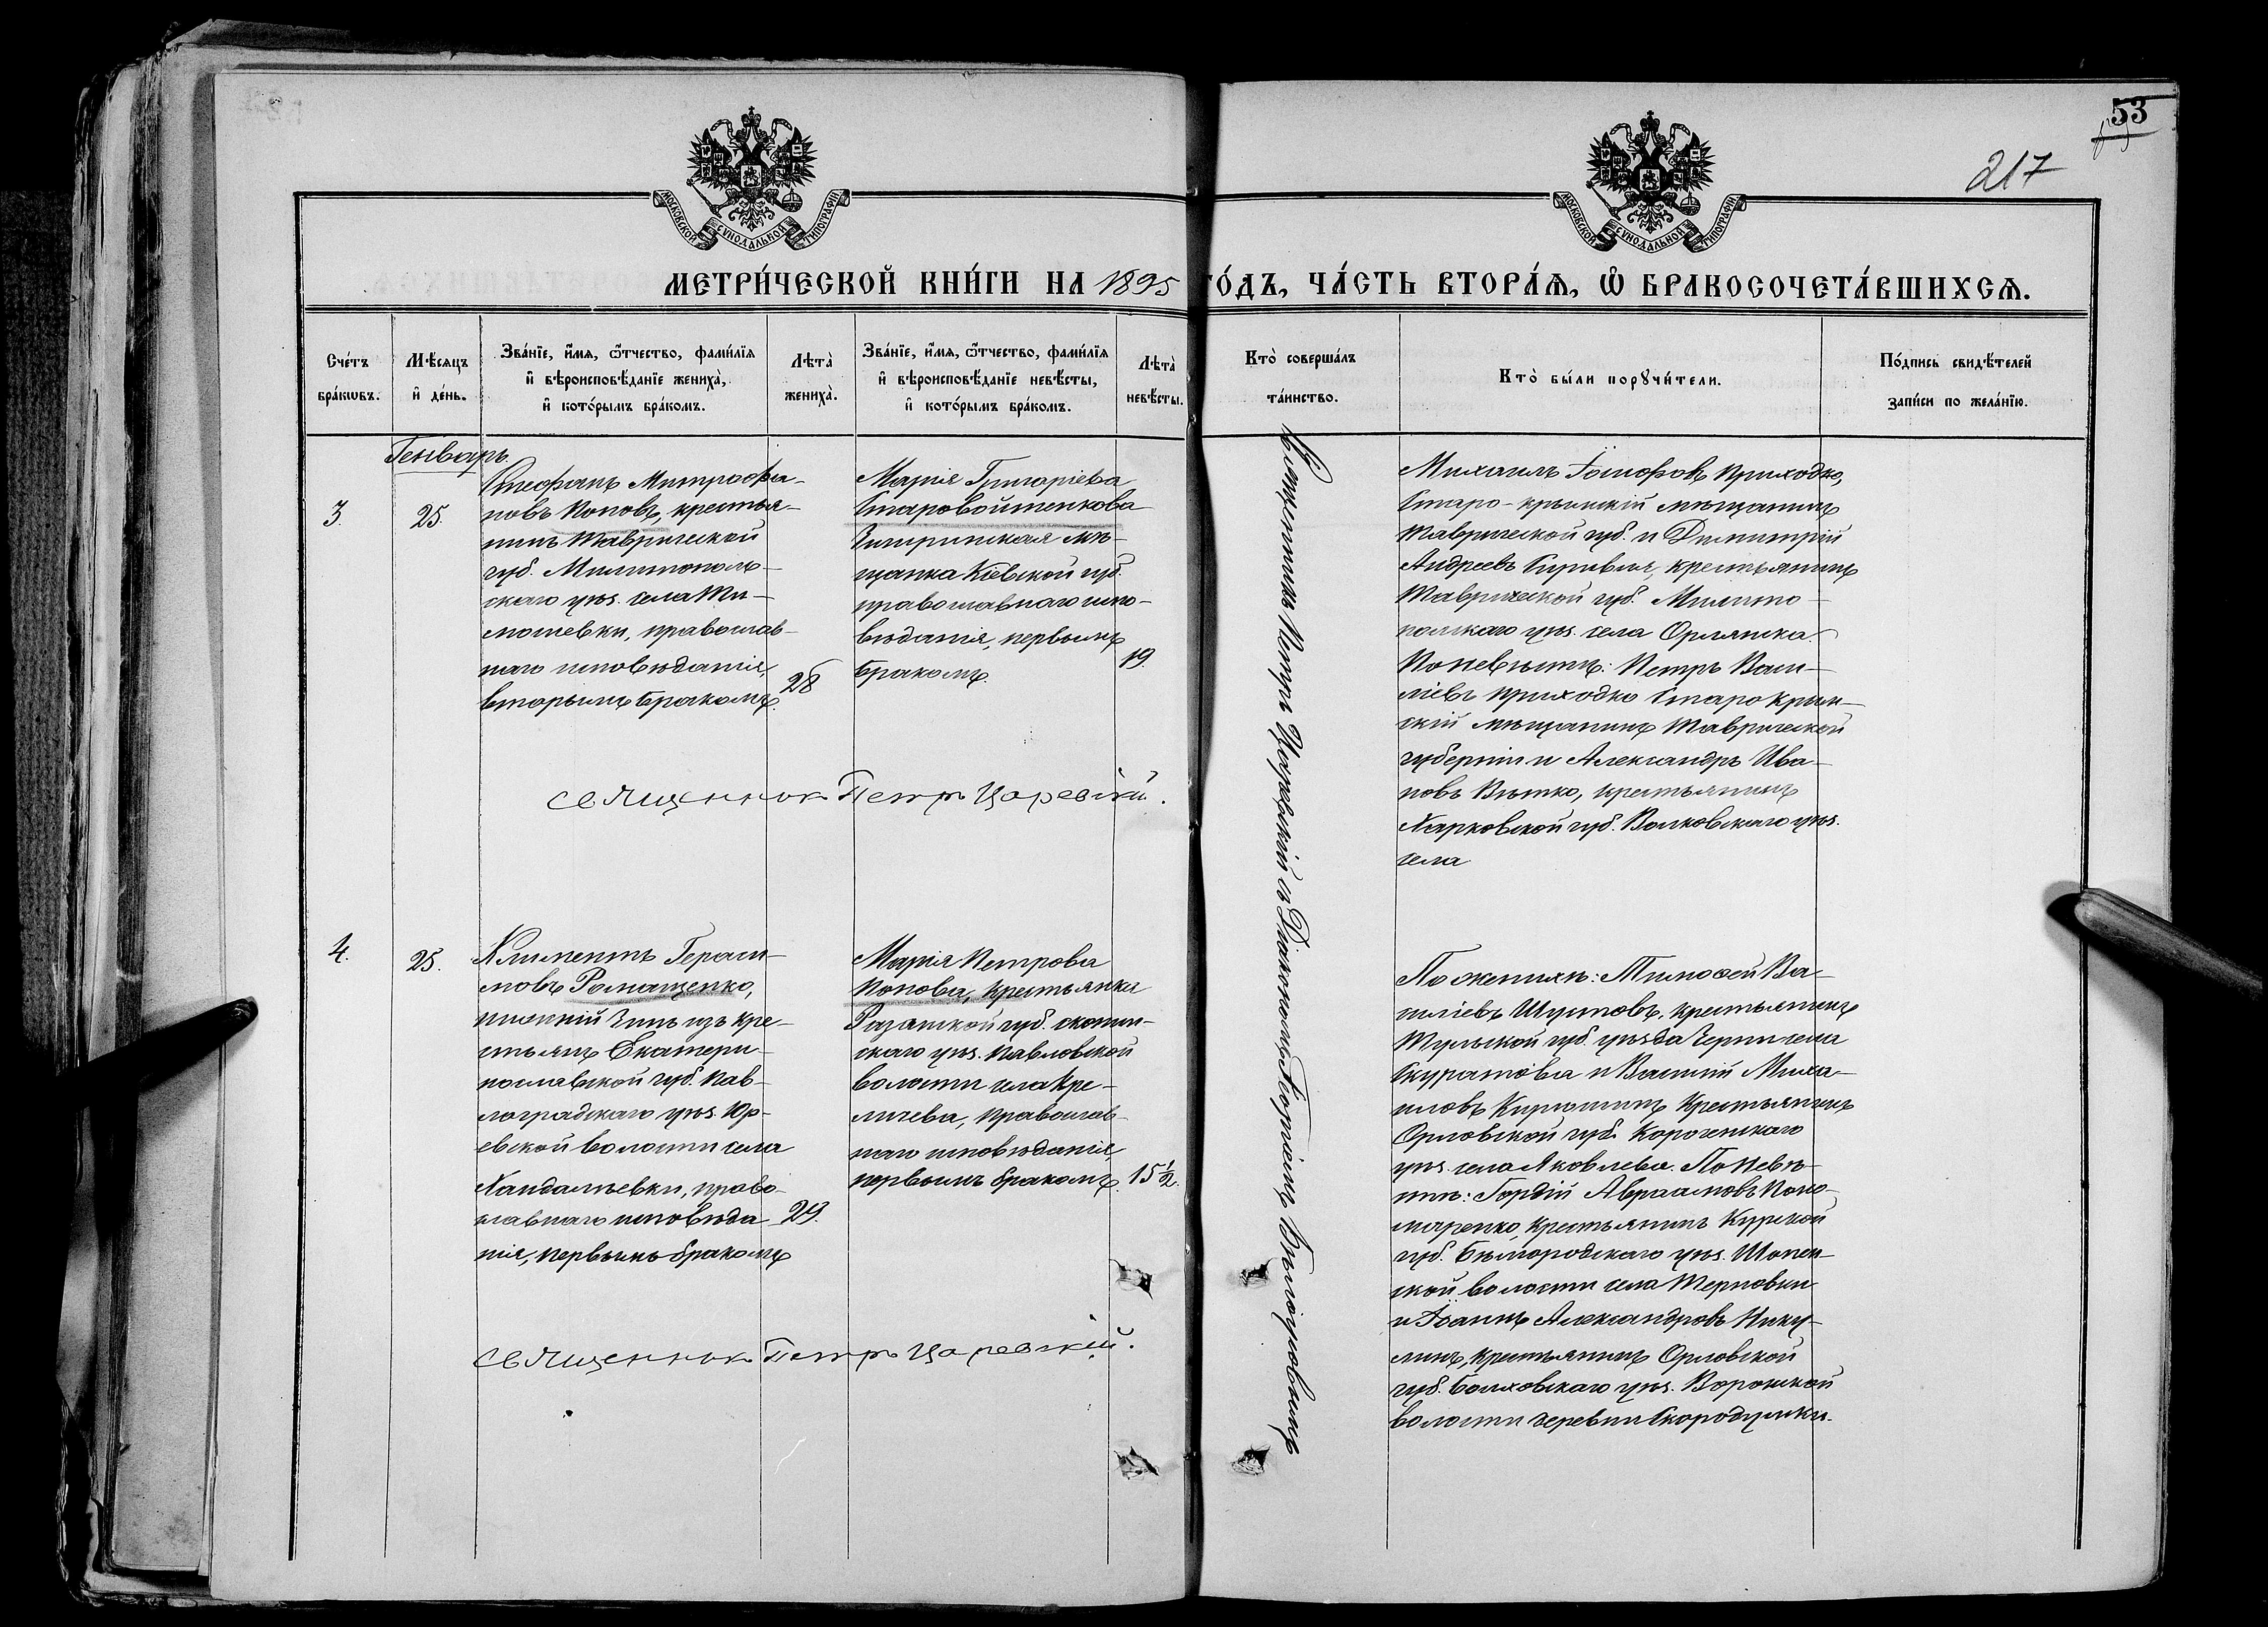 53
217
МОСКОВСКОЙ СѴНОДАЛЬНОЙ ТИПОГРАФІИ
МОСКОВСКОЙ СѴНОДАЛЬНОЙ ТИПОГРАФІИ
МЕТРИ́ЧЕСКОЙ КНИ́ГИ НА 1895 ГО́ДЪ, ЧА́СТЬ ВТОРА́Ѧ, Ѽ БРАКОСОЧЕТА́ВШИХСѦ.
Сче́тъ
бра́кѡвъ.
Мѣ́сѧцъ
и҆ де́нь.
Зва́нїе, и҆́мѧ, ѻ҆́тчество, фами́лїѧ
и҆ вѣроисповѣ́данїе жениха̀,
и҆ кото́рымъ бра́комъ.
Лѣта̀
жениха̀.
Зва́нїе, и҆́мѧ, ѻ҆́тчество, фами́лїѧ
и҆ вѣроисповѣ́данїе невѣ́сты,
и҆ кото́рымъ бра́комъ.
Лѣта̀
невѣ́сты.
Кто̀ соверша́лъ
та́инство.
Кто̀ бы́ли порꙋчи́тели.
По́дпись свидѣ́телей
за́писи по жела́нїю.
Генварь.
3.
25.
Стефанъ Митрофа-
новъ Поповъ, крестья-
нинъ Таврической
губ. Милитополь-
скаго уѣз. села Ти-
мошевки, православ-
наго исповѣданія,
вторымъ бракомъ.
28
Марія Григоріева
Старовойтенкова
Чигиринская мѣ-
щанка Кіевской губ.
православнаго испо-
вѣданія, первымъ
бракомъ.
19.
Священник Петръ Царевскій.
Священникъ Петръ Царевскій съ Діакономъ
Михаилъ Іосифовъ Приходко,
Старо-крымскій мѣщанинъ
Таврической губ. и Димитрій
Андреевъ крестьянинъ
Таврической губ. Милито-
польскаго уѣз. села Орлянска.
По невѣстѣ: Петръ Васи-
ліевъ Приходко Старокрым-
скій мѣщанинъ Таврической
губерніи и Александръ Ива-
новъ Витко, крестьянинъ
Харковской губ. Волковскаго уѣз.
села
4.
25.
Климентъ Гераси-
мовъ Ромащенко,
нижній чинъ изъ кре-
стьянъ Екатери-
нославской губ. Пав-
лоградскаго уѣз. Юр-
евской волости села
Хандалѣевки, право-
славнаго исповѣда
нія, первымъ бракомъ
29.
Марія Петрова
Попова, крестьянка
Разанской губ. скопин-
скаго уѣз. Павловской
волости села Кре-
личева, православ-
наго исповѣданія,
первымъ бракомъ.
15 ½.
Священник Петръ Царевскій.
По женихѣ: Тимофей Ва-
силіевъ Шустовъ, крестьянинъ
Тульской губ. уѣзда Черни села
Скуратова и Василій Миха-
иловъ Кирюшинъ крестьянинъ
Орловской губ.
уѣз. села Яковлева. По невѣ-
стѣ: Гордій Авраамовъ Поно-
маренко, крестьянинъ Курской
губ. Бѣлгородскаго уѣз. Шопен-
ской волости села Терновки
и Іоаннъ Александровъ Нику-
линъ, крестьянинъ Орловской
губ. Болховскаго уѣз.
волости деревни Скородумки.